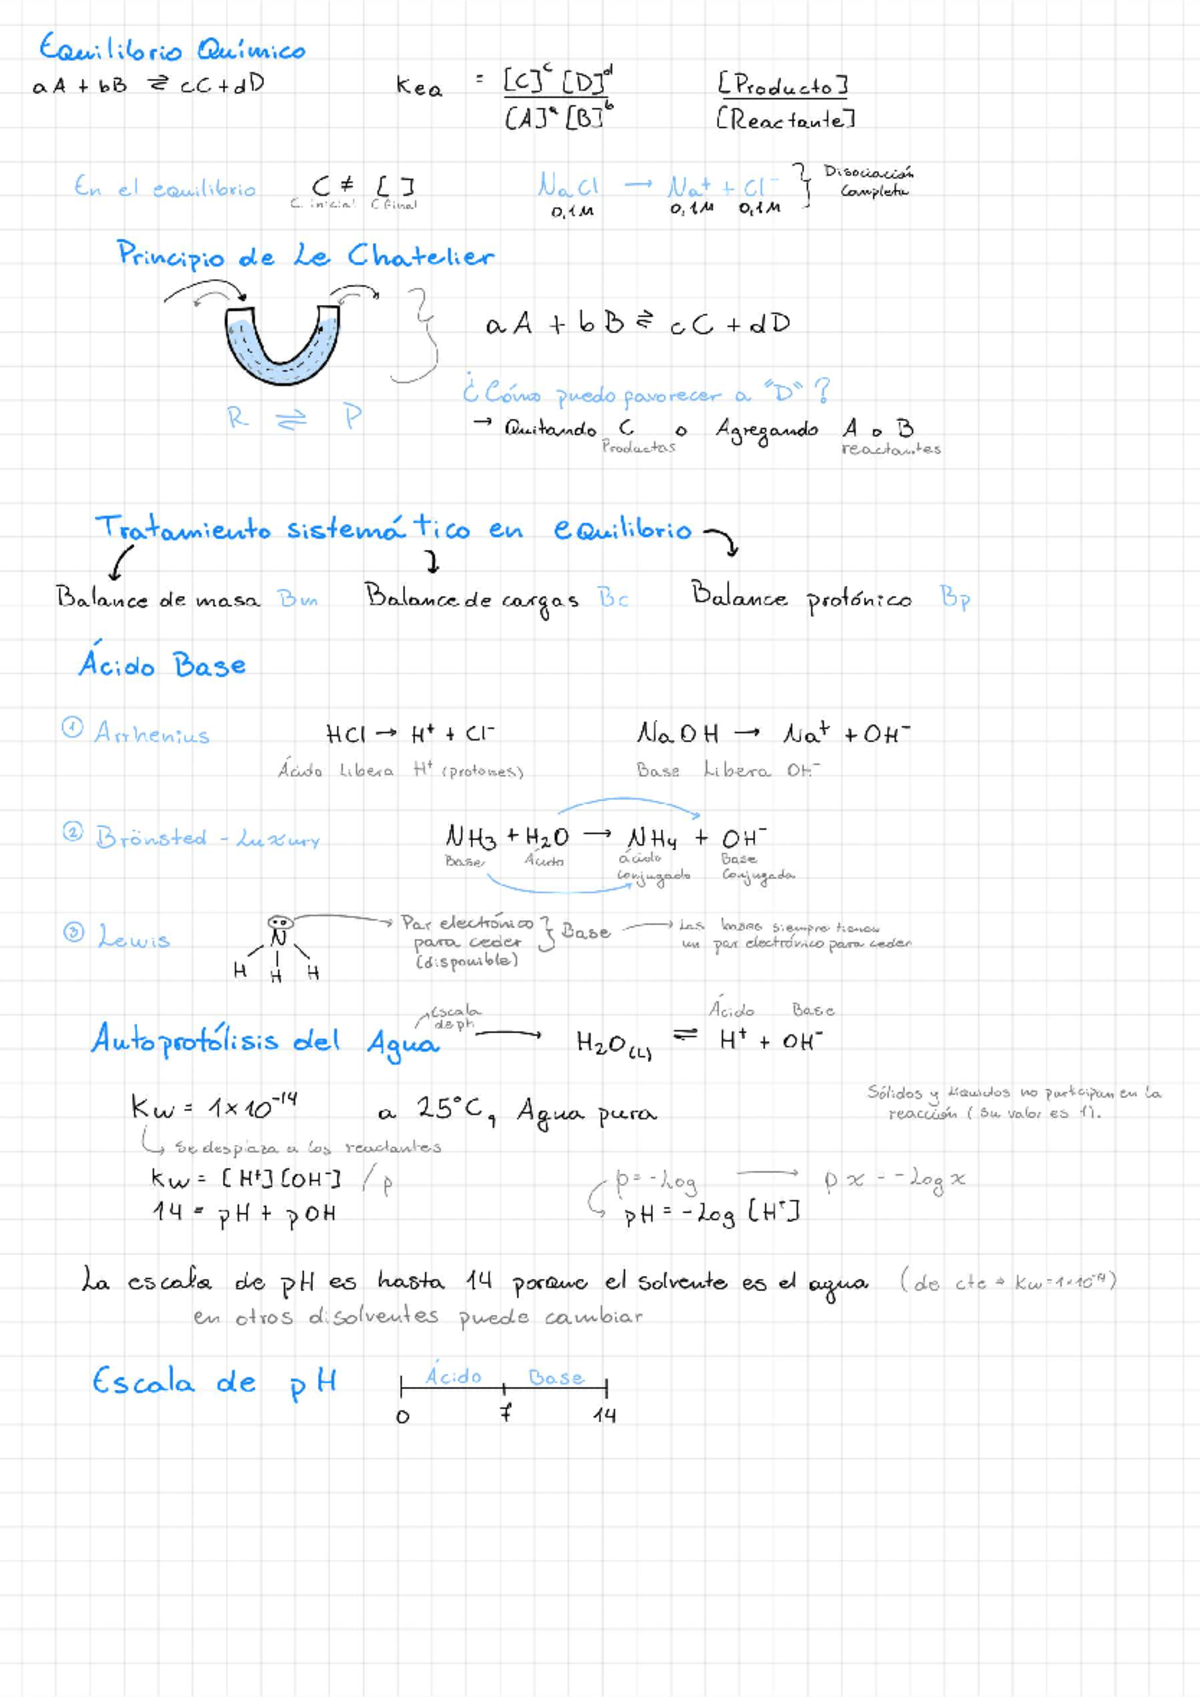 Equilibrio Químico
aA + bB ⇌ cC + dD
Kea = [C]^c [D]^d / [A]^a [B]^b
[Producto] / [Reactante]
En el equilibrio C ≠ [ ]
C. inicial C final
NaCl → Na⁺ + Cl⁻
0,1M 0,1M 0,1M
Disociación
Completa
Principio de Le Chatelier
aA + bB ⇌ cC + dD
R ⇌ P
¿Cómo puedo favorecer a "D"?
→ Quitando C o Agregando A o B
Productos reactantes
Tratamiento sistemático en equilibrio
Balance de masa Bm Balance de cargas Bc Balance protónico Bp
Ácido Base
① Arrhenius HCl → H⁺ + Cl⁻ NaOH → Na⁺ + OH⁻
Ácido Libera H⁺ (protones) Base Libera OH⁻
② Brönsted - Luxury NH3 + H2O → NH4 + OH⁻
Base Ácido ácido conjugado Base Conjugada
③ Lewis
N
H H H
Par electrónico
para ceder
(disponible)
} Base → Las bases siempre tienen
un par electrónico para ceder
Autoprotólisis del Agua
Escala
de ph
Ácido Base
H2O(L) ⇌ H⁺ + OH⁻
Kw = 1×10⁻¹⁴ a 25°C, Agua pura
Sólidos y líquidos no participan en la
reacción (su valor es 1).
Se desplaza a los reactantes
Kw = [H⁺][OH⁻] / p
p = -Log → p x = -Log x
14 = pH + pOH
pH = -Log [H⁺]
La escala de pH es hasta 14 porque el solvente es el agua (de cte → Kw=1×10⁻¹⁴)
en otros disolventes puede cambiar
Escala de pH
Ácido Base
0 7 14